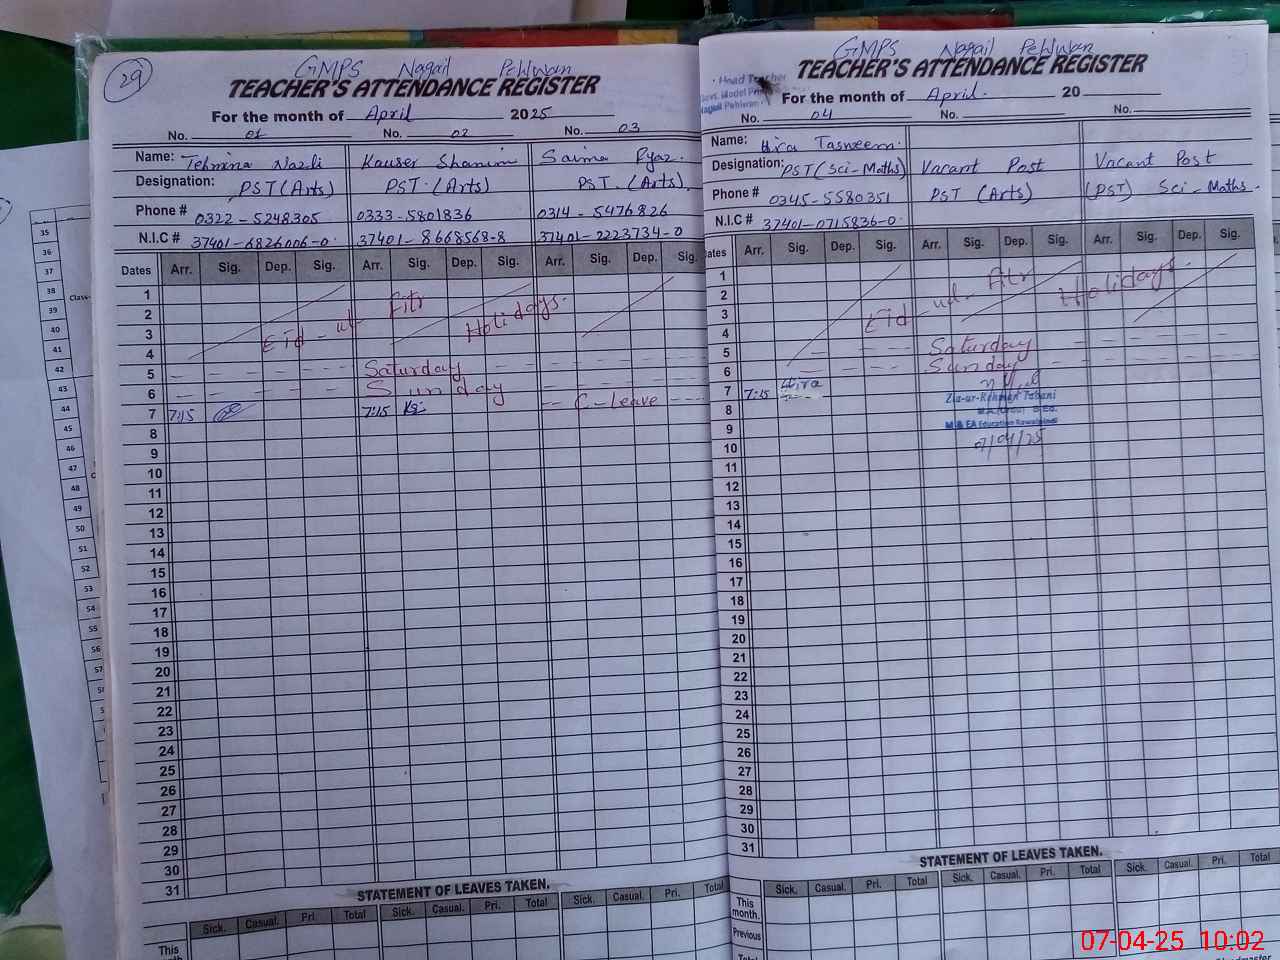 29
GMPS Nagail Pehlwan
TEACHER'S ATTENDANCE REGISTER
For the month of April 2025
No. 01 No. 02 No. 03
Name: Tehmina Nazli Kauser Shamim Saima Ryaz.
Designation: PST (Arts) PST. (Arts) PST. (Arts)
Phone # 0322-5248305 0333-5801836 0314-5476826
N.I.C # 37401-6826006-0 37401-8668568-8 37401-2223734-0
Dates Arr. Sig. Dep. Sig. Arr. Sig. Dep. Sig. Arr. Sig. Dep. Sig.
1
2
3
Eid-ul-Fitr Holidays.
4
5 Saturday
6 Sunday
7 7:15 7:15 C-Leave
8
9
10
11
12
13
14
15
16
17
18
19
20
21
22
23
24
25
26
27
28
29
30
31
STATEMENT OF LEAVES TAKEN.
Sick. Casual. Pri. Total Sick. Casual. Pri. Total Sick. Casual. Pri. Total
This
GMPS Nagail Pehlwan
TEACHER'S ATTENDANCE REGISTER
Head Teacher
Govt. Model
Nagail Pehlwan
For the month of April. 20
No. 04 No. No.
Name: Hira Tasneem.
Designation: PST (Sci-Maths) Vacant Post Vacant Post
Phone # 0345-5580351 PST (Arts) (PST) Sci-Maths.
N.I.C # 37401-0715836-0
Dates Arr. Sig. Dep. Sig. Arr. Sig. Dep. Sig. Arr. Sig. Dep. Sig.
1
2
Eid-ul-Fitr Holidays.
3
4
5 Saturday
6 Sunday
7 7:15 Hira
Zia-ur-Rehman Tabani
8
M.A (Urdu) B.Ed.
9 M & EA Education Rawalpindi
10 07/04/25
11
12
13
14
15
16
17
18
19
20
21
22
23
24
25
26
27
28
29
30
31
STATEMENT OF LEAVES TAKEN.
Sick. Casual. Pri. Total Sick. Casual. Pri. Total Sick. Casual. Pri. Total
This
month.
Previous
35
36
37
38
39
40
41
42
43
44
45
46
47
48
49
50
51
52
53
54
55
56
57
Class-
07-04-25 10:02